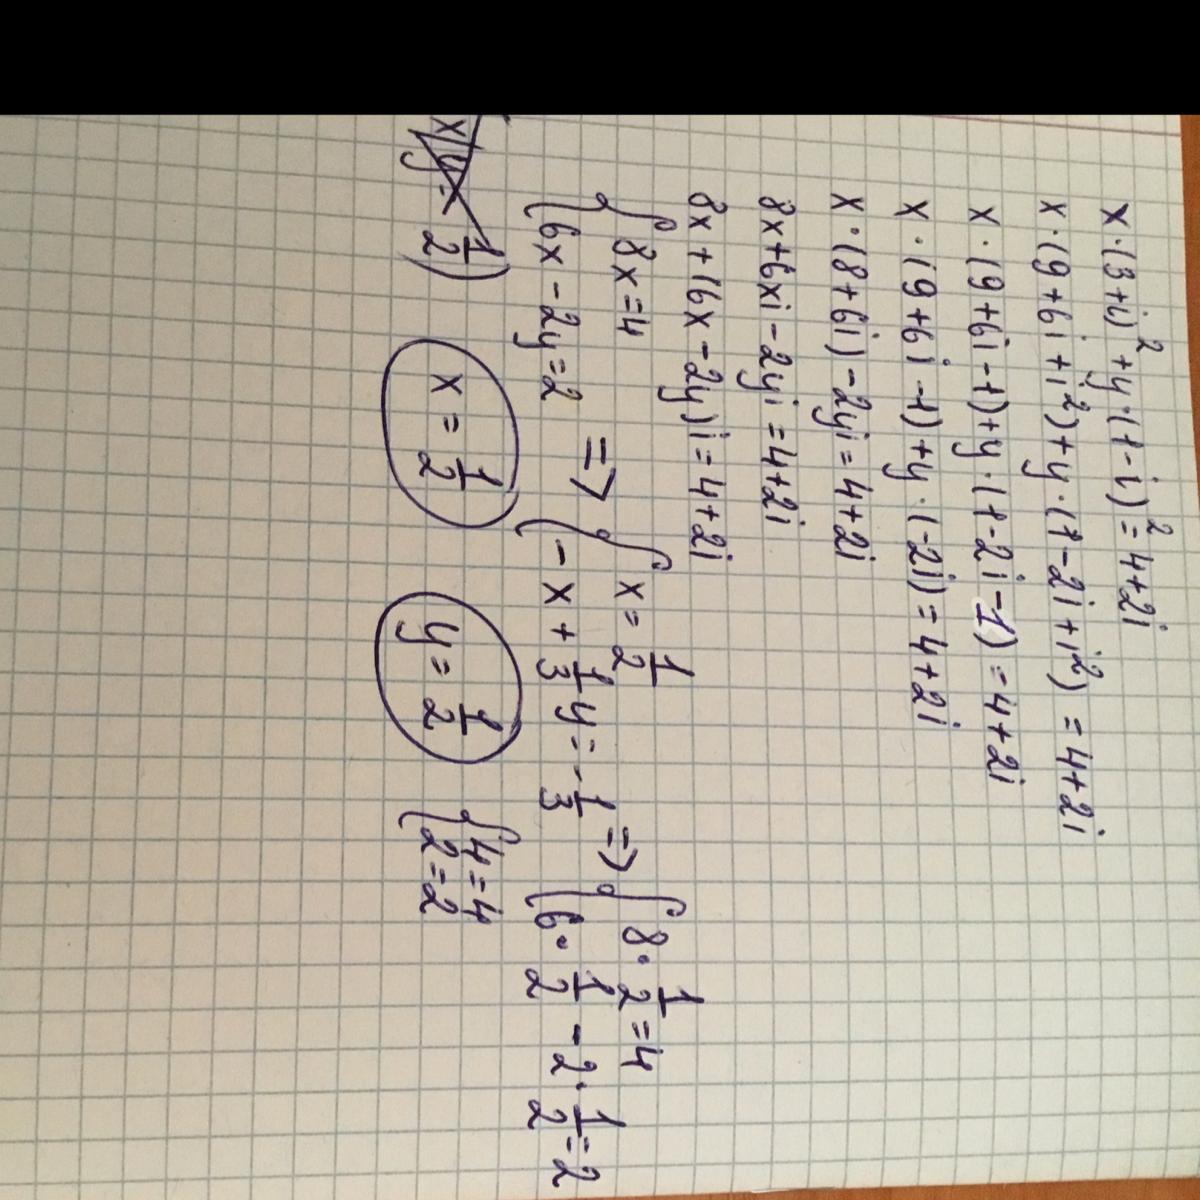 x·(3+i)²+y·(1-i)²=4+2i
x·(9+6i+i²)+y·(1-2i+i²)=4+2i
x·(9+6i-1)+y·(1-2i-1)=4+2i
x·(9+6i-1)+y·(-2i)=4+2i
x·(8+6i)-2yi=4+2i
8x+6xi-2yi=4+2i
8x+(6x-2y)i=4+2i
{8x=4 {x=1/2 {8·1/2=4
{6x-2y=2 => {-x+1/3y=-1/3 => {6·1/2-2·1/2=2
x=1/2 y=1/2 {4=4
{2=2